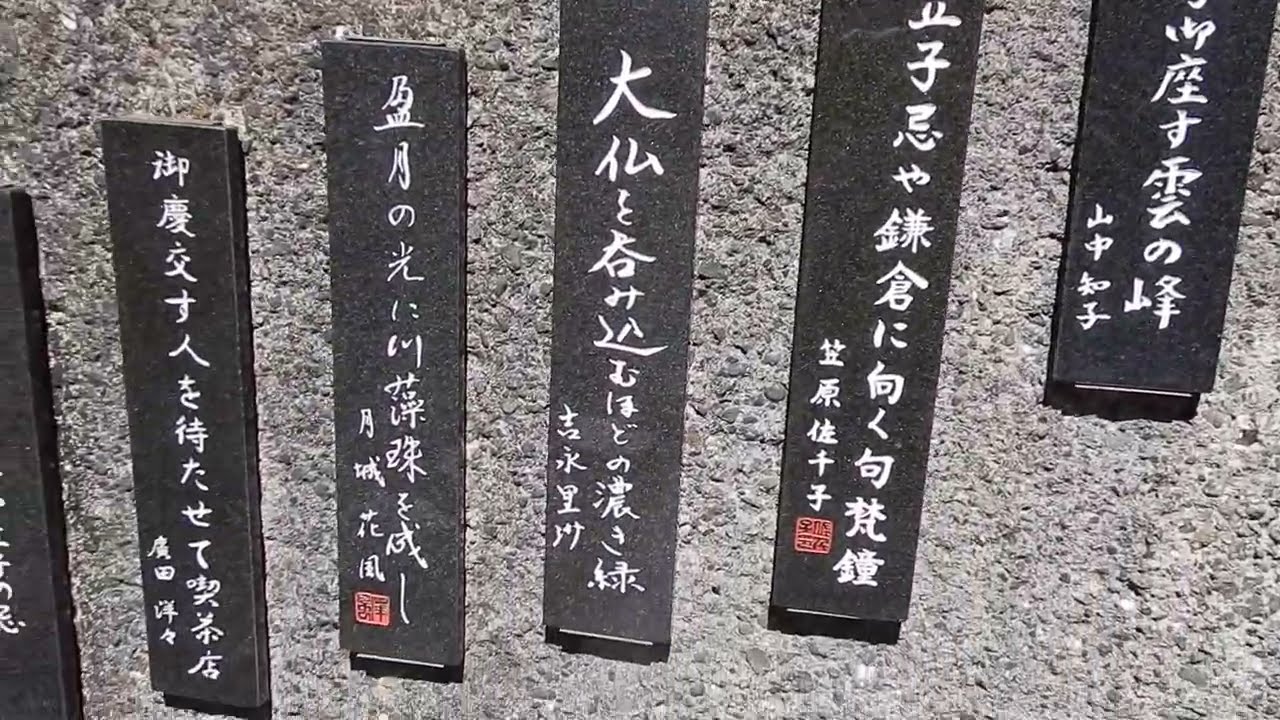 御座す雲の峰
山中知子
立子忌や鎌倉に向く句梵鐘
笠原佐千子
大仏を呑み込むほどの濃き緑
吉永里沙
盈月の光に川藻珠を成し
月城花風
御慶交す人を待たせて喫茶店
廣田洋々
の忌